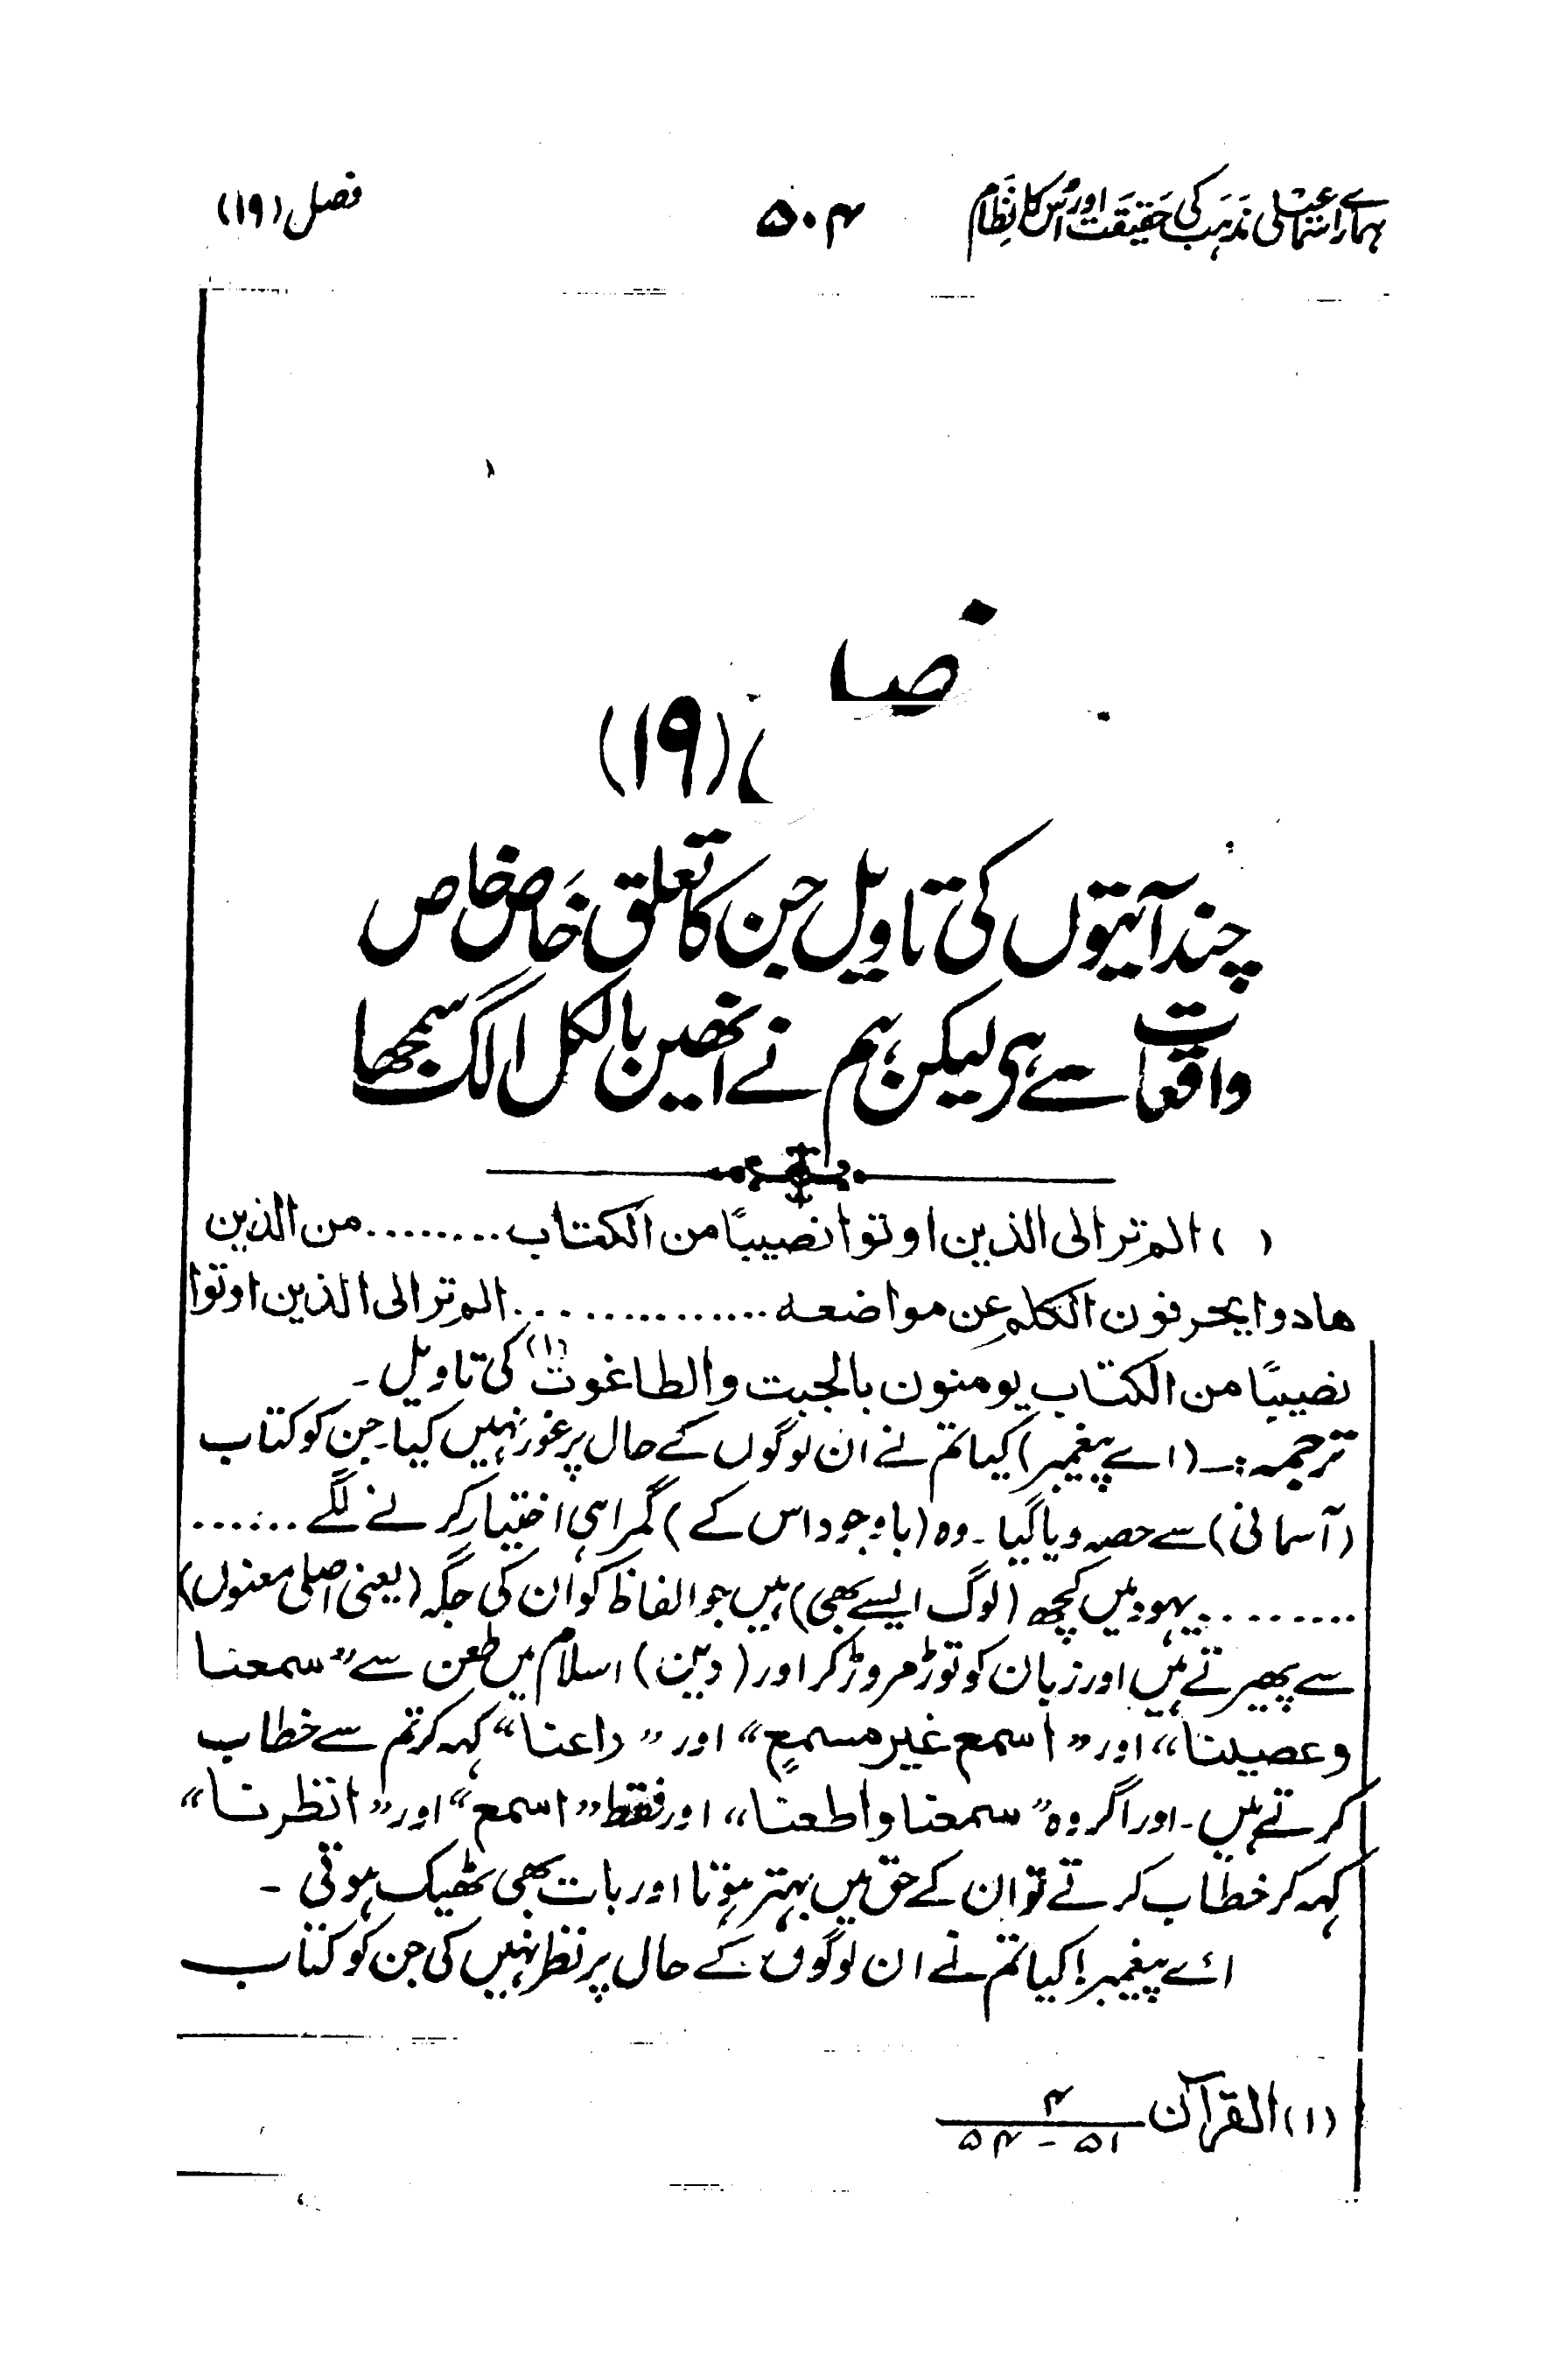 ہمارے اسماعیلی مذہب کی حقیقت اور اُس کا نظام
۵۰۴
فصل (۱۹)
(۱۹)
چند آیتوں کی تاویل جن کا تعلق خاص خاص
واقعات سے ہی لیکن ہم نے انھیں بالکل الگ سمجھا
( ) الم تر الی الذین اوتوا نصیبًا من الکتاب ........ من الذین
ھادوا یحرفون الکلم عن مواضعہ ............... الم تر الی الذین اوتوا
نصیبًا من الکتاب یومنون بالجبت والطاغوت (۱) کی تاویل ۔
ترجمہ :۔ (اے پیغمبر) کیا تم نے ان لوگوں کے حال پر غور نہیں کیا۔ جن کو کتاب
(آسمانی) سے حصہ دیا گیا ۔ وہ (باوجود اس کے) گمراہی اختیار کرنے لگے ......
......... یہود میں کچھ (لوگ ایسے بھی) ہیں جو الفاظ کو ان کی جگہ (یعنی اصلی معنوں)
سے پھیرتے ہیں اور زبان کو توڑ مروڑ کر اور (دین) اسلام میں طعن سے ”سمعنا
وعصینا“ اور ”اسمع غیر مسمعٍ“ اور ”راعنا“ کہہ کر تم سے خطاب
کرتے ہیں ۔ اور اگر وہ ”سمعنا واطعنا“ اور فقط ”اسمع“ اور ”انظرنا“
کہہ کر خطاب کرتے تو ان کے حق میں بہتر ہوتا اور بات بھی ٹھیک ہوتی ۔
اے پیغمبر! کیا تم نے ان لوگوں کے حال پر نظر نہیں کی جن کو کتاب
(۱) القرآن ۴
۵۱ - ۵۴